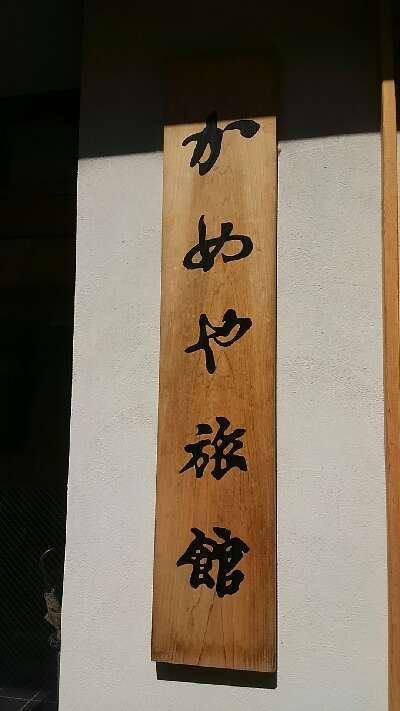 かめや旅館